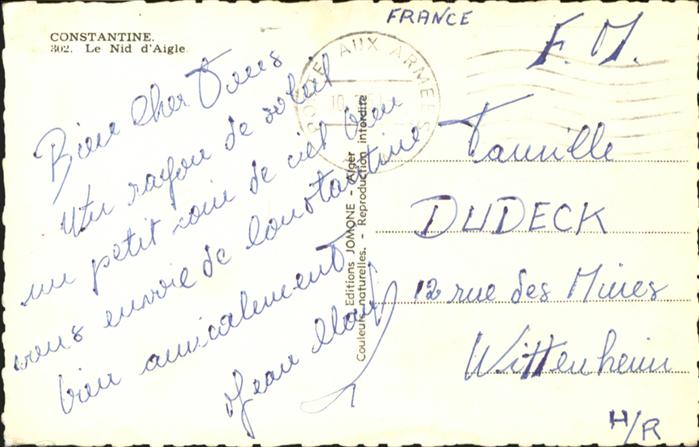 CONSTANTINE.
302. Le Nid d'Aigle
Bien cher Tous
Un rayon de soleil
un petit coin de ciel bleu
vous envoie de Constantine
bien amicalement
Jean
Editions JOMONE - Alger
Couleurs naturelles. - Reproduction interdite
POSTE AUX ARMEES
FRANCE
F. M.
Famille
DUDECK
12 rue des Mines
Wittenheim
H/R